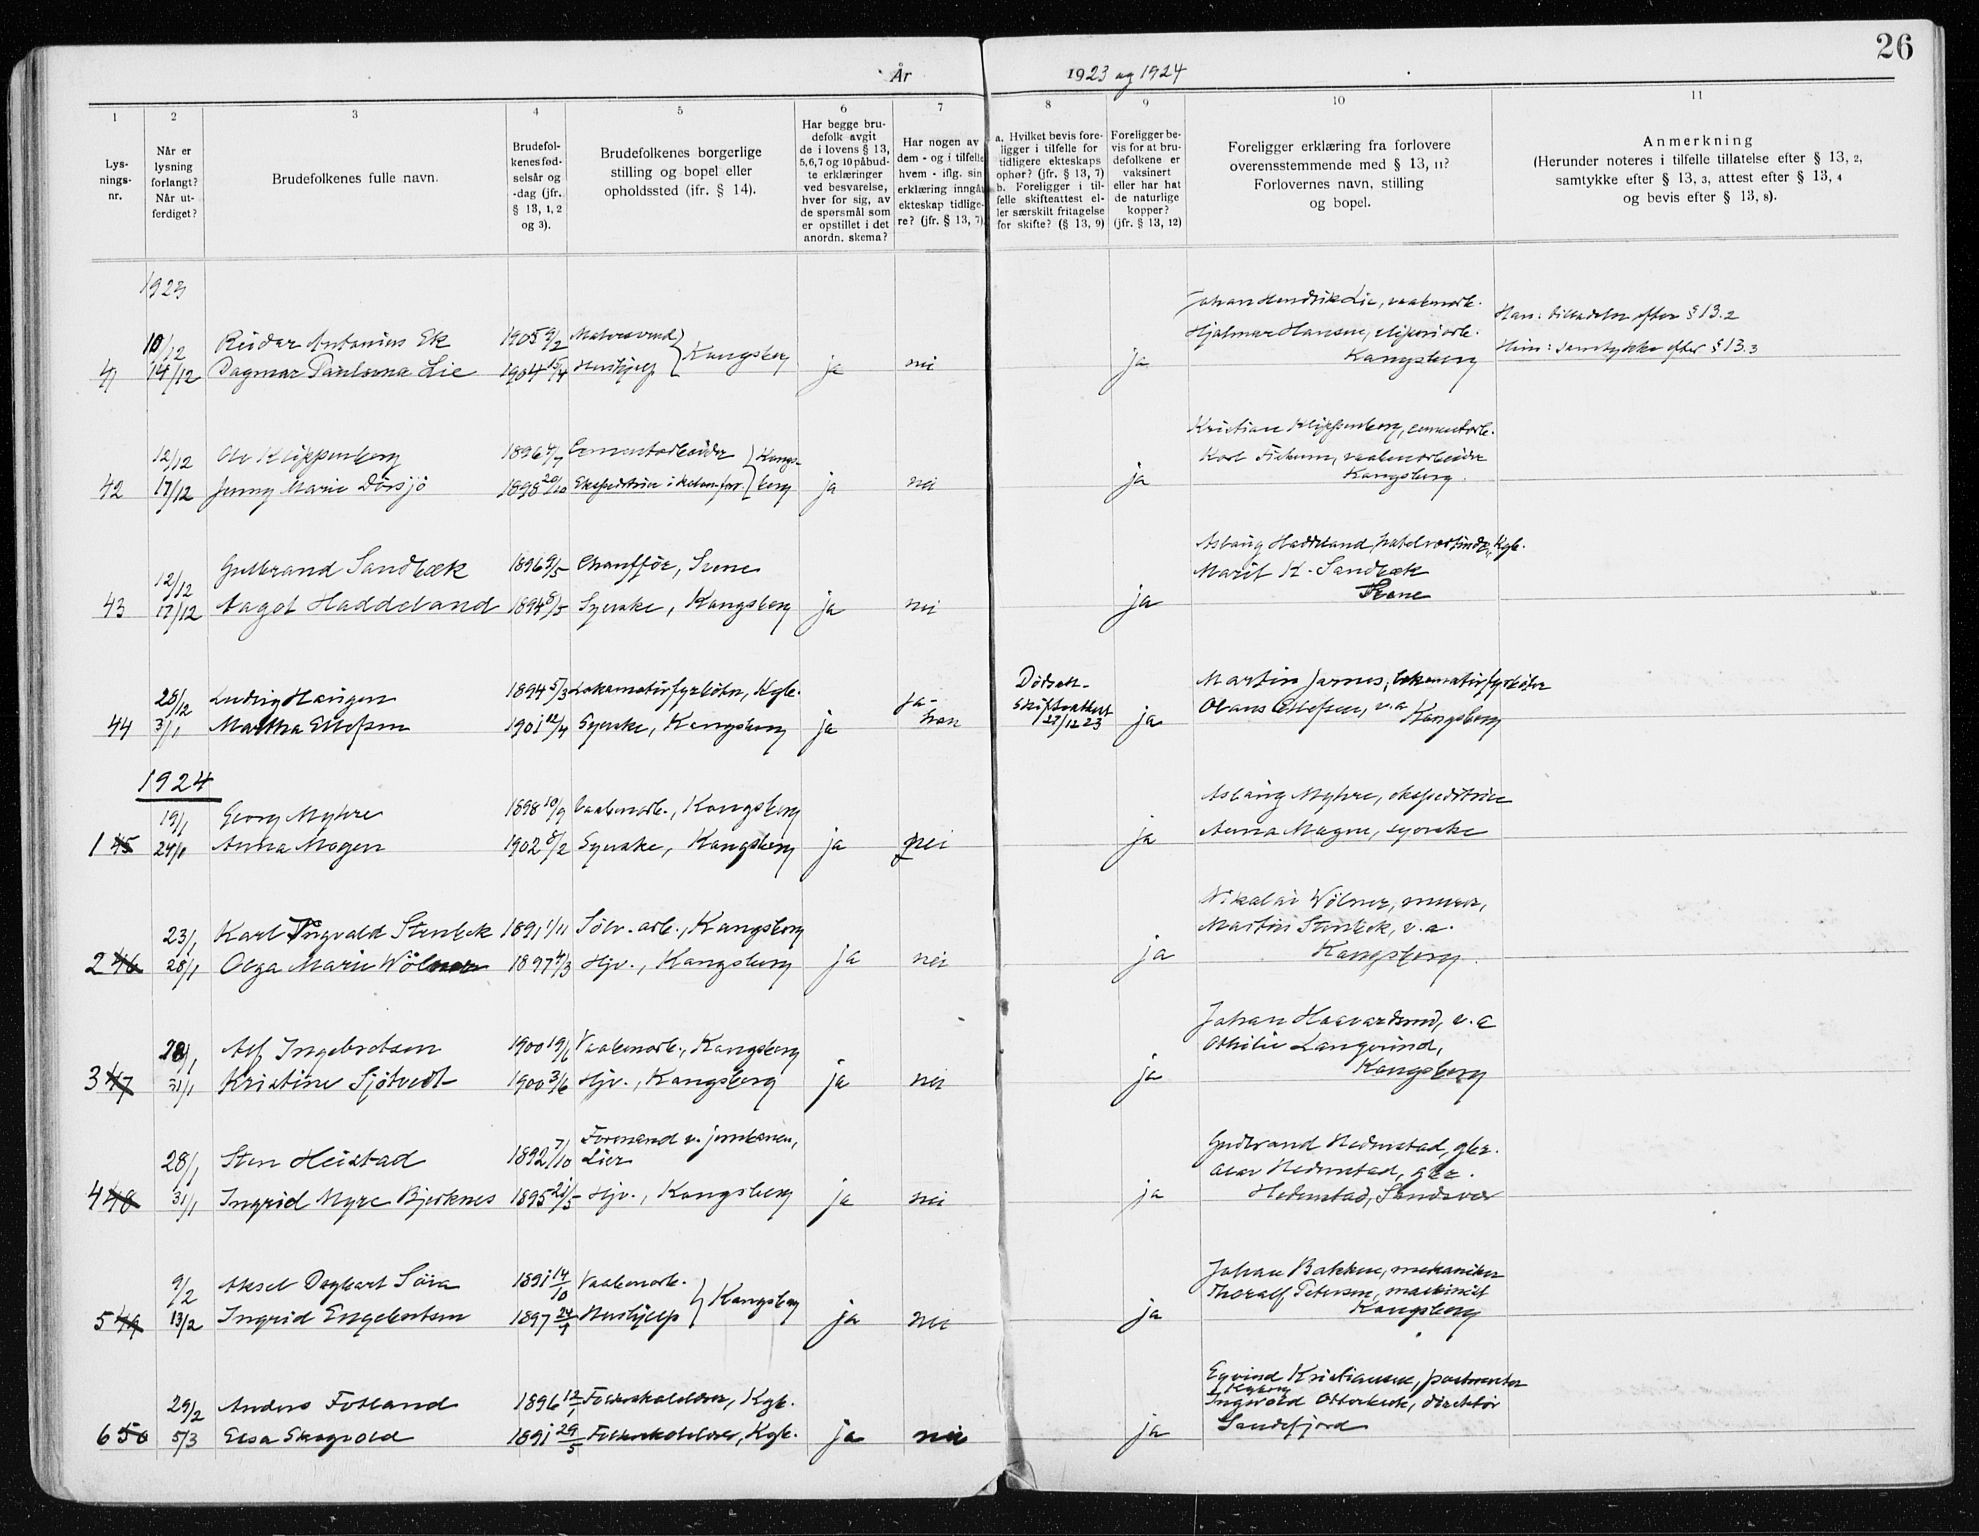 26
År 1923 og 1924
1 2 3 4 5 6 7 8 9 10 11
Lysningsnr.
Når er lysning forlangt? Når utferdiget?
Brudefolkenes fulle navn.
Brudefolkenes fødselsår og -dag (jfr. § 13, 1, 2 og 3).
Brudefolkenes borgerlige stilling og bopel eller opholdssted (jfr. § 14).
Har begge brudefolk avgit de i lovens § 13, 5, 6, 7 og 10 påbudte erklæringer ved besvarelse, hver for sig, av de spørsmål som er opstillet i det anordn. skema?
Har nogen av dem - og i tilfelle hvem - iflg. sin erklæring inngått ekteskap tidligere? (jfr. § 13, 7)
a. Hvilket bevis foreligger i tilfelle for tidligere ekteskaps ophør? (jfr. § 13, 7)
b. Foreligger i tilfelle skifteattest eller særskilt fritagelse for skifte? (§ 13, 9)
Foreligger bevis for at brudefolkene er vaksinert eller har hat de naturlige kopper? (jfr. § 13, 12)
Foreligger erklæring fra forlovere overensstemmende med § 13, 11? Forlovernes navn, stilling og bopel.
Anmerkning
(Herunder noteres i tilfelle tillatelse efter § 13, 2, samtykke efter § 13, 3, attest efter § 13, 4 og bevis efter § 13, 8).
1923
Johan Hendrik Lie, vaabenarb.
10/12 Reidar Antonius Ek 1905 9/2 Hjalmar Hansen, sliperiarb. Han: tilladelse efter § 13.2
41 14/12 Dagmar Paulovna Lie 1904 15/4 Hushjelp } Kongsberg ja nei ja Kongsberg Hun: samtykke efter § 13.3
Kristian Klippenberg, cementarb.
12/12 Ole Klippenberg 1896 4/7 Cementarbeider } Kongs- Karl vaabenarbeider
42 17/12 Jenny Marie Dørsjø 1898 20/10 Ekspeditrice i kolon.forr. berg ja nei ja Kongsberg.
Aslaug Haddeland, Kgb.
12/12 Gulbrand Sandbæk 1896 9/5 Chauffør, Svene Marit K. Sandbæk
43 17/12 Aagot Haddeland 1894 8/5 Syerske, Kongsberg ja nei ja Svene
28/12 Ludvig Haugen 1894 5/3 Lokomotivfyrbøter, Kgb. ja- Dødsatt. Martin Jarnes, lokomotivfyrbøter
44 3/1 Martha Ellefsen 1901 12/4 Syerske, Kongsberg ja han Skifteattest 27/12 23 ja Olaus Ellefsen, v.a. Kongsberg
1924
19/1 Georg Myhre 1898 10/9 Vaabenarb., Kongsberg Aslaug Myhre, ekspeditrice
1 45 24/1 Anna Mogen 1902 8/2 Syerske, Kongsberg ja nei ja Anna Mogen, syerske
Nikolai Wölner, murer,
23/1 Karl Ingvald Stenbek 1891 1/11 Sølv.arb., Kongsberg Martin Stenbek, v.a.
2 46 28/1 Olga Marie Wölner 1897 4/3 Hjv., Kongsberg ja nei ja Kongsberg.
Johan Haavardsrud, v.a
28/1 Alf Ingebretsen 1900 19/6 Vaabenarb., Kongsberg Othilie Langerud,
3 47 31/1 Kristine Sjøtvedt 1900 3/6 Hjv., Kongsberg ja nei ja Kongsberg
Formand v. jernbanen, Gudbrand Hedenstad, gbr.
28/1 Sten Heistad 1892 7/10 Lier Olav Hedenstad, gbr.
4 48 31/1 Ingrid Myre Bjerknes 1895 21/5 Hjv., Kongsberg ja nei ja Hedenstad, Sandsvær
Johan Bakken, mekaniker
9/2 Aksel Dagbart 1891 14/10 Vaabenarb. } Kongsberg Thoralf Petersen, maskinist
5 49 13/2 Ingrid Engebretsen 1897 Hushjelp ja nei ja Kongsberg
Eyvind Kristiansen, postmester
Kgberg
29/2 Anders Fosland 1896 12/1 Folkeskolelærer, Kgb. Ingvald Otterbeck, direktør
6 50 5/3 Elsa Skogvold 1891 29/5 Folkeskolelærer, Kgb. ja nei ja Sandefjord